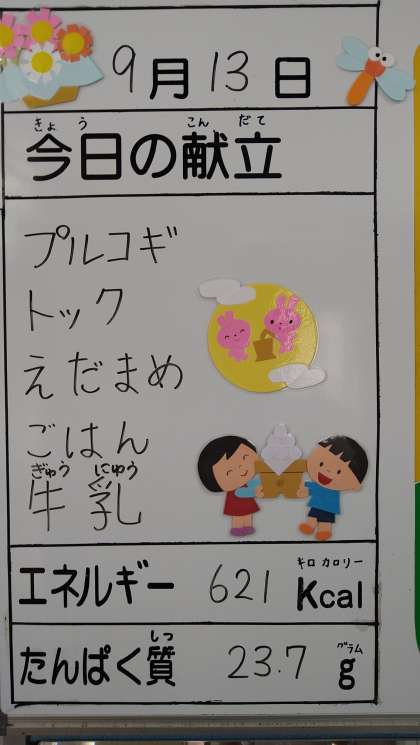 9月13日
きょう こんだて
今日の献立
プルコギ
トック
えだまめ
ごはん
ぎゅう にゅう
牛乳
キロ カロリー
エネルギー 621 Kcal
しつ グラム
たんぱく質 23.7 g